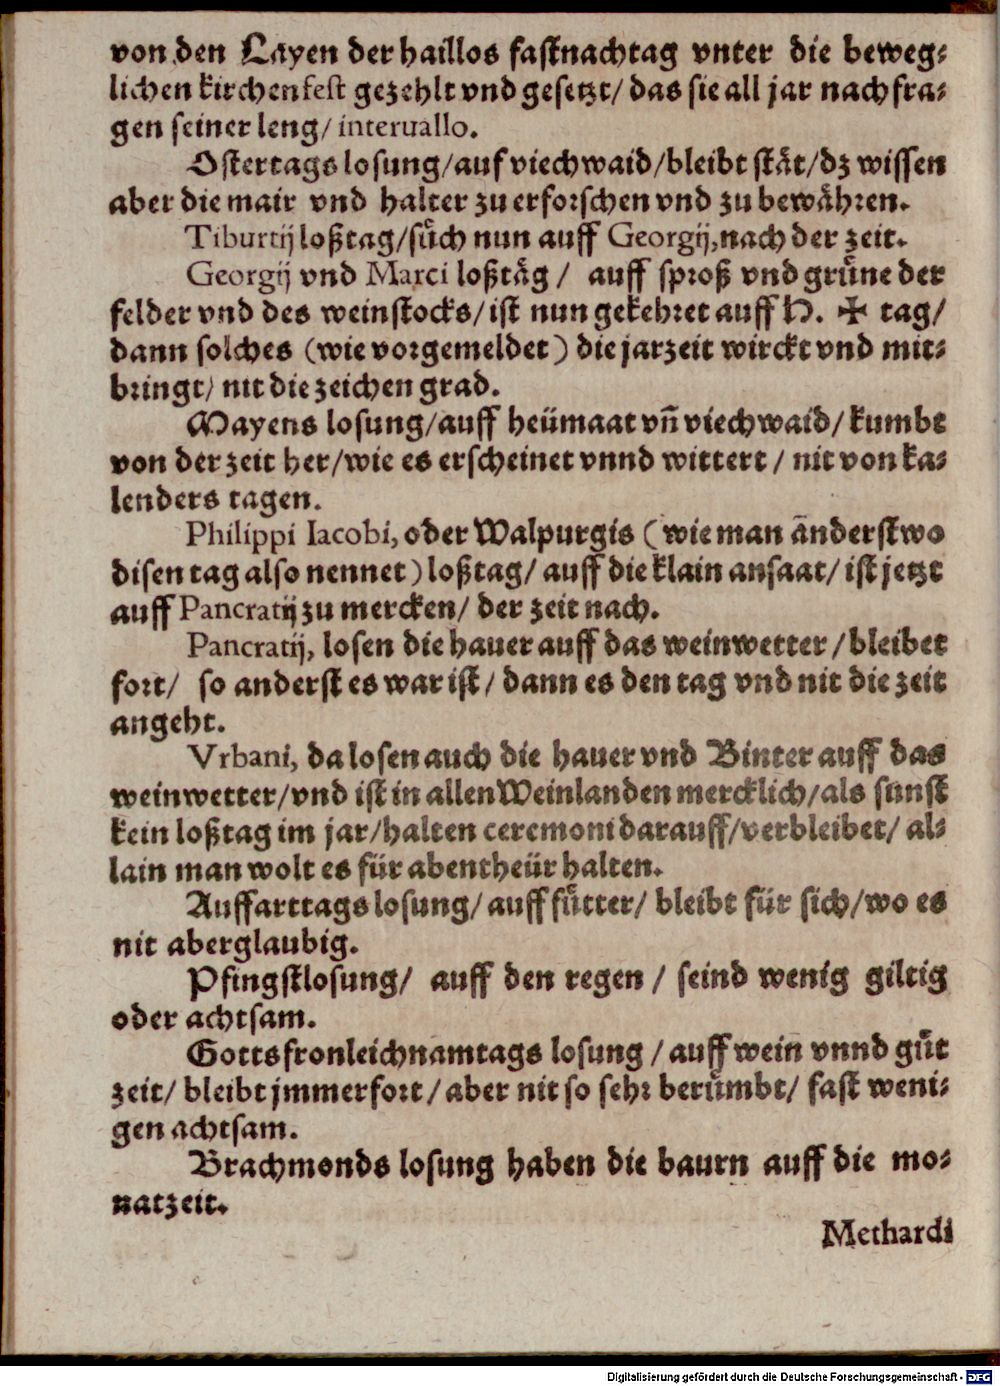 von den Layen der haillos fastnachtag vnter die beweg⸗
lichen kirchenfest gezehlt vnd gesetzt/ das sie all jar nach fra⸗
gen seiner leng/ interuallo.
Ostertags losung/auf viech waid/bleibt stät/dz wissen
aber die mair vnd halter zu erforschen vnd zu bewähren.
Tiburtij loßtag/sůch nun auff Georgij, nach der zeit.
Georgij vnd Marci loßtäg / auff sproß vnd grüne der
felder vnd des weinstocks/ist nun gekehret auff H. ✠ tag/
dann solches (wie vorgemeldet) die jarzeit wirckt vnd mit⸗
bringt/ nit die zeichen grad.
Mayens losung/auff heümaat vñ viechwaid/ kumbt
von der zeit her/wie es erscheinet vnnd wittert / nit von ka⸗
lenders tagen.
Philippi Iacobi, oder Walpurgis (wie man anderstwo
disen tag also nennet) loßtag/ auff die klain ansaat/ ist jetzt
auff Pancratij zu mercken/ der zeit nach.
Pancratij, losen die hauer auff das weinwetter /bleibet
fort/ so anderst es war ist/ dann es den tag vnd nit die zeit
angeht.
Vrbani, da losen auch die hauer vnd Binter auff das
weinwetter/vnd ist in allen Weinlanden mercklich/als sunst
kein loßtag im jar/halten ceremoni darauff/verbleibet/ al⸗
lain man wolt es für abentheür halten.
Auffarttags losung/ auff fůtter/ bleibt für sich/wo es
nit aberglaubig.
Pfingstlosung/ auff den regen / seind wenig giltig
oder achtsam.
Gottsfronleichnamtags losung / auff wein vnnd gůt
zeit/ bleibt jmmerfort/ aber nit so sehr berůmbt/ fast weni⸗
gen achtsam.
Brachmonds losung haben die baurn auff die mo⸗
natzeit.
Methardi
Digitalisierung gefördert durch die Deutsche Forschungsgemeinschaft - DFG